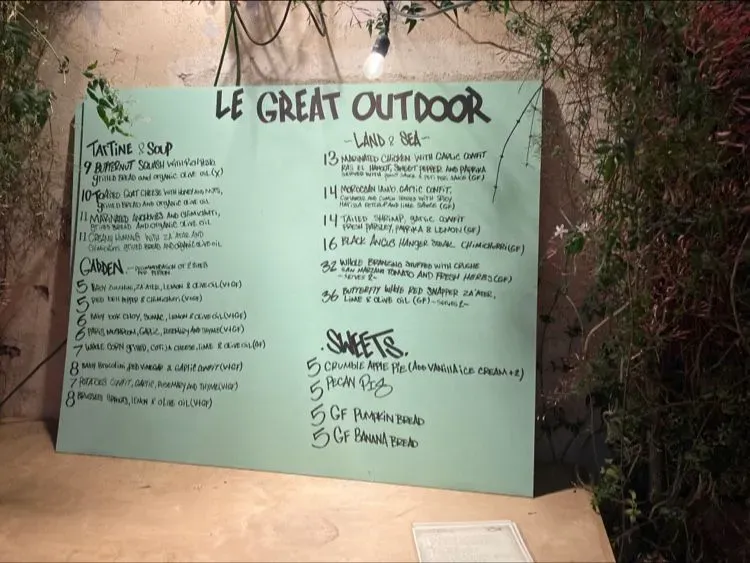 LE GREAT OUTDOOR
TARTINE & SOUP
9 BUTTERNUT SQUASH WITH
grilled BREAD and ORGANIC OLIVE OIL (V)
10 TOASTED GOAT CHEESE WITH HONEY AND NUTS,
GRILLED BREAD AND ORGANIC OLIVE OIL
11 MARINATED ANCHOVIES AND CHIMICHURRI,
GRILLED BREAD AND ORGANIC OLIVE OIL
11 CREAMY HUMMUS WITH ZA'ATAR AND
CHIMICHURRI, GRILLED BREAD AND ORGANIC OLIVE OIL
GARDEN - RECOMMENDATION OF 2 SIDES
PER PERSON
5 BABY ZUCCHINI, ZA'ATER, LEMON & OLIVE OIL (V+GF)
5 RED BELL PEPPER & CHIMICHURRI (V+GF)
6 BABY BOK CHOY, SUMAC, LEMON & OLIVE OIL (V+GF)
6 PARIS MUSHROOM, GARLIC, ROSEMARY AND THYME (V+GF)
7 WHOLE CORN GRILLED, COTIJA CHEESE, LIME & OLIVE OIL (GF)
8 BABY BROCCOLINI, RED VINEGAR & GARLIC CONFIT (V+GF)
7 POTATOES CONFIT, GARLIC, ROSEMARY AND THYME (V+GF)
8 BRUSSELS SPROUTS, LEMON & OLIVE OIL (V+GF)
- LAND & SEA -
13 MARINATED CHICKEN WITH GARLIC CONFIT
RAS EL HANOUT, SWEET PEPPER AND PAPRIKA
SERVED WITH SAUCE & SAUCE (GF)
14 MOROCCAN LAMB, GARLIC CONFIT,
CORIANDER AND CUMIN SERVED WITH SPICY
HARISSA KETCHUP AND LIME SAUCE (GF)
14 TAILED SHRIMP, GARLIC CONFIT
FRESH PARSLEY, PAPRIKA & LEMON (GF)
16 BLACK ANGUS HANGER STEAK, CHIMICHURRI (GF)
32 WHOLE BRANZINO STUFFED WITH
SAN MARZANO TOMATO AND FRESH HERBS (GF)
- SERVES 2 -
36 BUTTERFLY WHOLE RED SNAPPER ZA'ATER,
LIME & OLIVE OIL (GF) - SERVES 2 -
. SWEETS .
5 CRUMBLE APPLE PIE (ADD VANILLA ICE CREAM +2)
5 PECAN PIE
5 GF PUMPKIN BREAD
5 GF BANANA BREAD